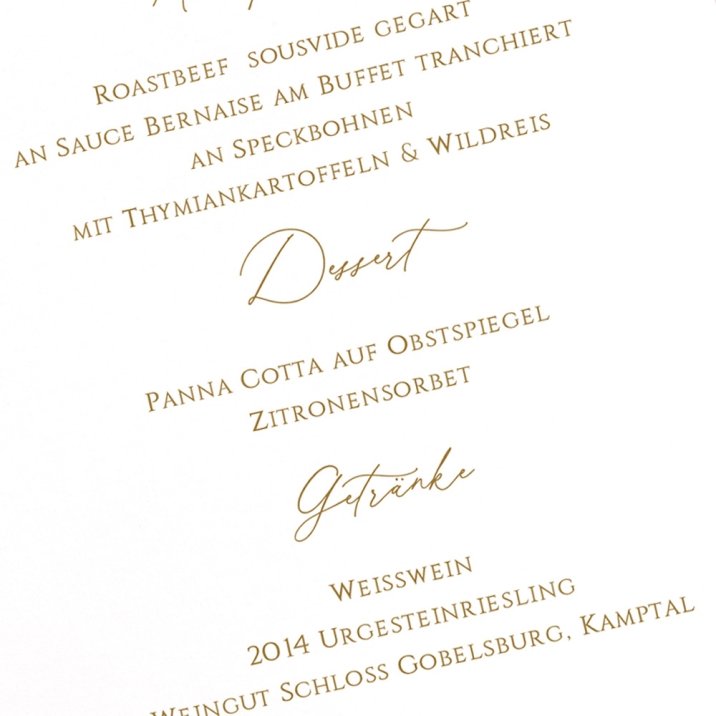 Roastbeef sousvide gegart
an Sauce Bernaise am Buffet tranchiert
an Speckbohnen
mit Thymiankartoffeln & Wildreis
Dessert
Panna Cotta auf Obstspiegel
Zitronensorbet
Getränke
Weisswein
2014 Urgesteinriesling
Weingut Schloss Gobelsburg, Kamptal